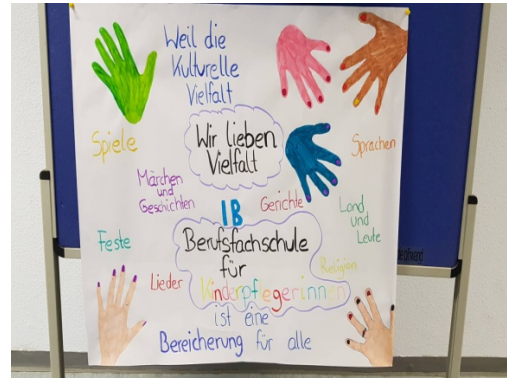 Weil die
Kulturelle
Vielfalt
Spiele
Wir lieben
Vielfalt
Sprachen
Märchen
und
Geschichten
Gerichte
Land
und
Leute
IB
Feste
Berufsfachschule
für
Kinderpflegerinnen
Religion
Lieder
ist eine
Bereicherung für alle